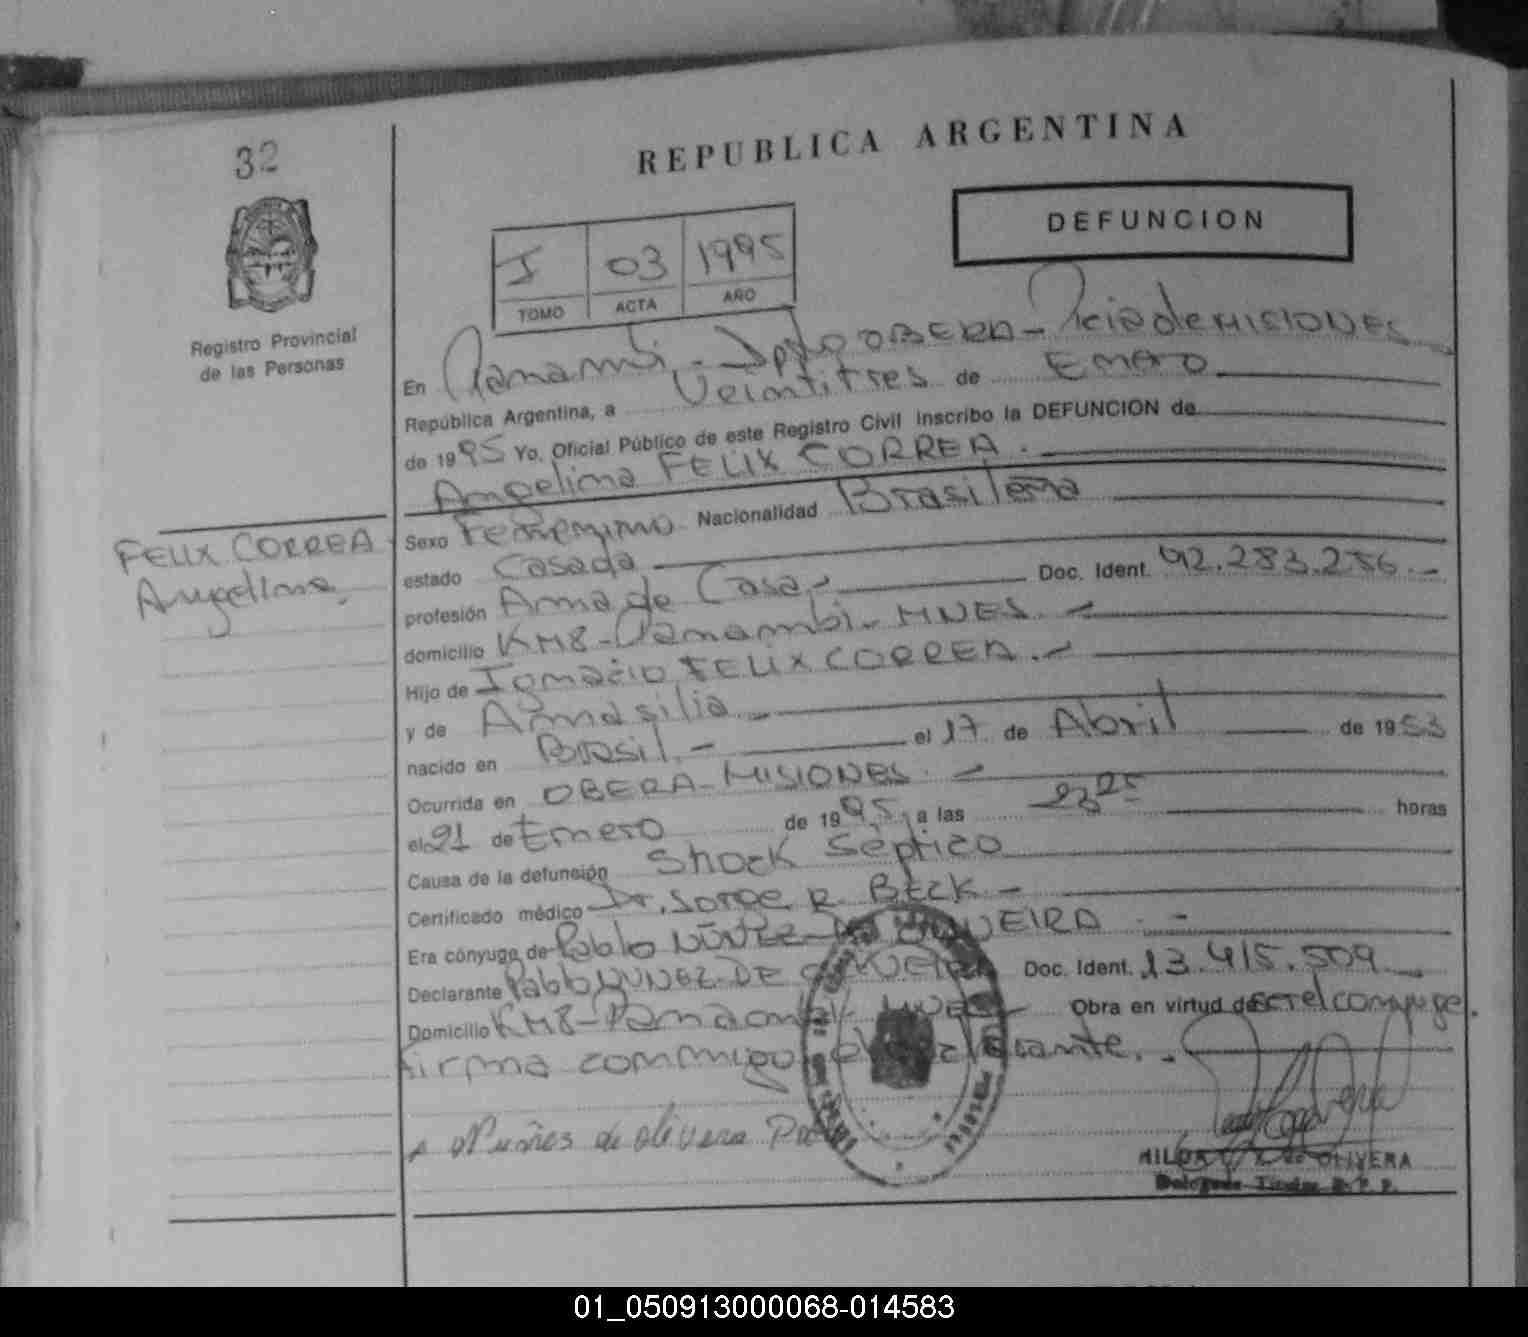 32
REPUBLICA ARGENTINA
DEFUNCION
I 03 1995
TOMO ACTA AÑO
Registro Provincial
de las Personas
En Panambi - Dpto OBERA - Pcia de MISIONES
República Argentina, a Veintitres de Enero
de 1995 Yo, Oficial Público de este Registro Civil inscribo la DEFUNCION de
Angelina FELIX CORREA.
FELIX CORREA
Angelina
Sexo Femenino Nacionalidad Brasileña
estado Casada
profesión Ama de Casa.- Doc. Ident. 92.283.256.-
domicilio KM8-Panambi-MNES.-
Hijo de Ignacio FELIX CORREA.-
y de Amasilia
nacido en Brasil.- el 17 de Abril de 1953
Ocurrida en OBERA-MISIONES.-
el 21 de Enero de 1995, a las 23 25 horas
Causa de la defunsión Shock Séptico
Certificado médico Dr. Jorge R. BECK -
Era cónyuge de Pablo NUÑEZ DE OLIVEIRA -
Declarante Pablo NUÑEZ DE OLIVEIRA Doc. Ident. 13.415.509
Domicilio KM8-Panambi MNES Obra en virtud de ser el conyuge.
firma conmigo el declarante.-
Nuñes de olivera
HILDA de OLIVERA
Delegada Titular R.P.P.
01_050913000068-014583